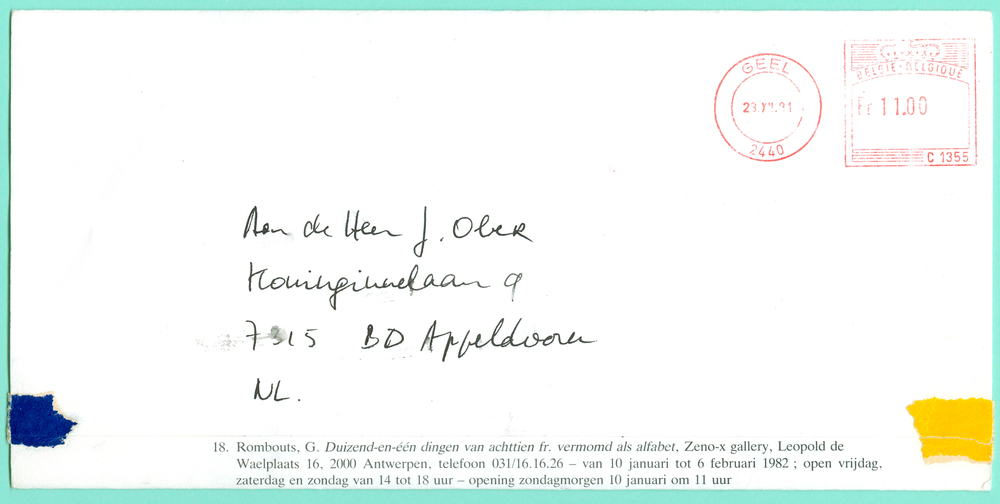 GEEL
23.XII.81
2440
BELGIE-BELGIQUE
Fr 11.00
C 1355
Aan de Heer J. Ober
Koninginnelaan 9
7315 BD Appeldooren
NL.
18. Rombouts, G. Duizend-en-één dingen van achttien fr. vermomd als alfabet, Zeno-x gallery, Leopold de
Waelplaats 16, 2000 Antwerpen, telefoon 031/16.16.26 – van 10 januari tot 6 februari 1982 ; open vrijdag,
zaterdag en zondag van 14 tot 18 uur – opening zondagmorgen 10 januari om 11 uur